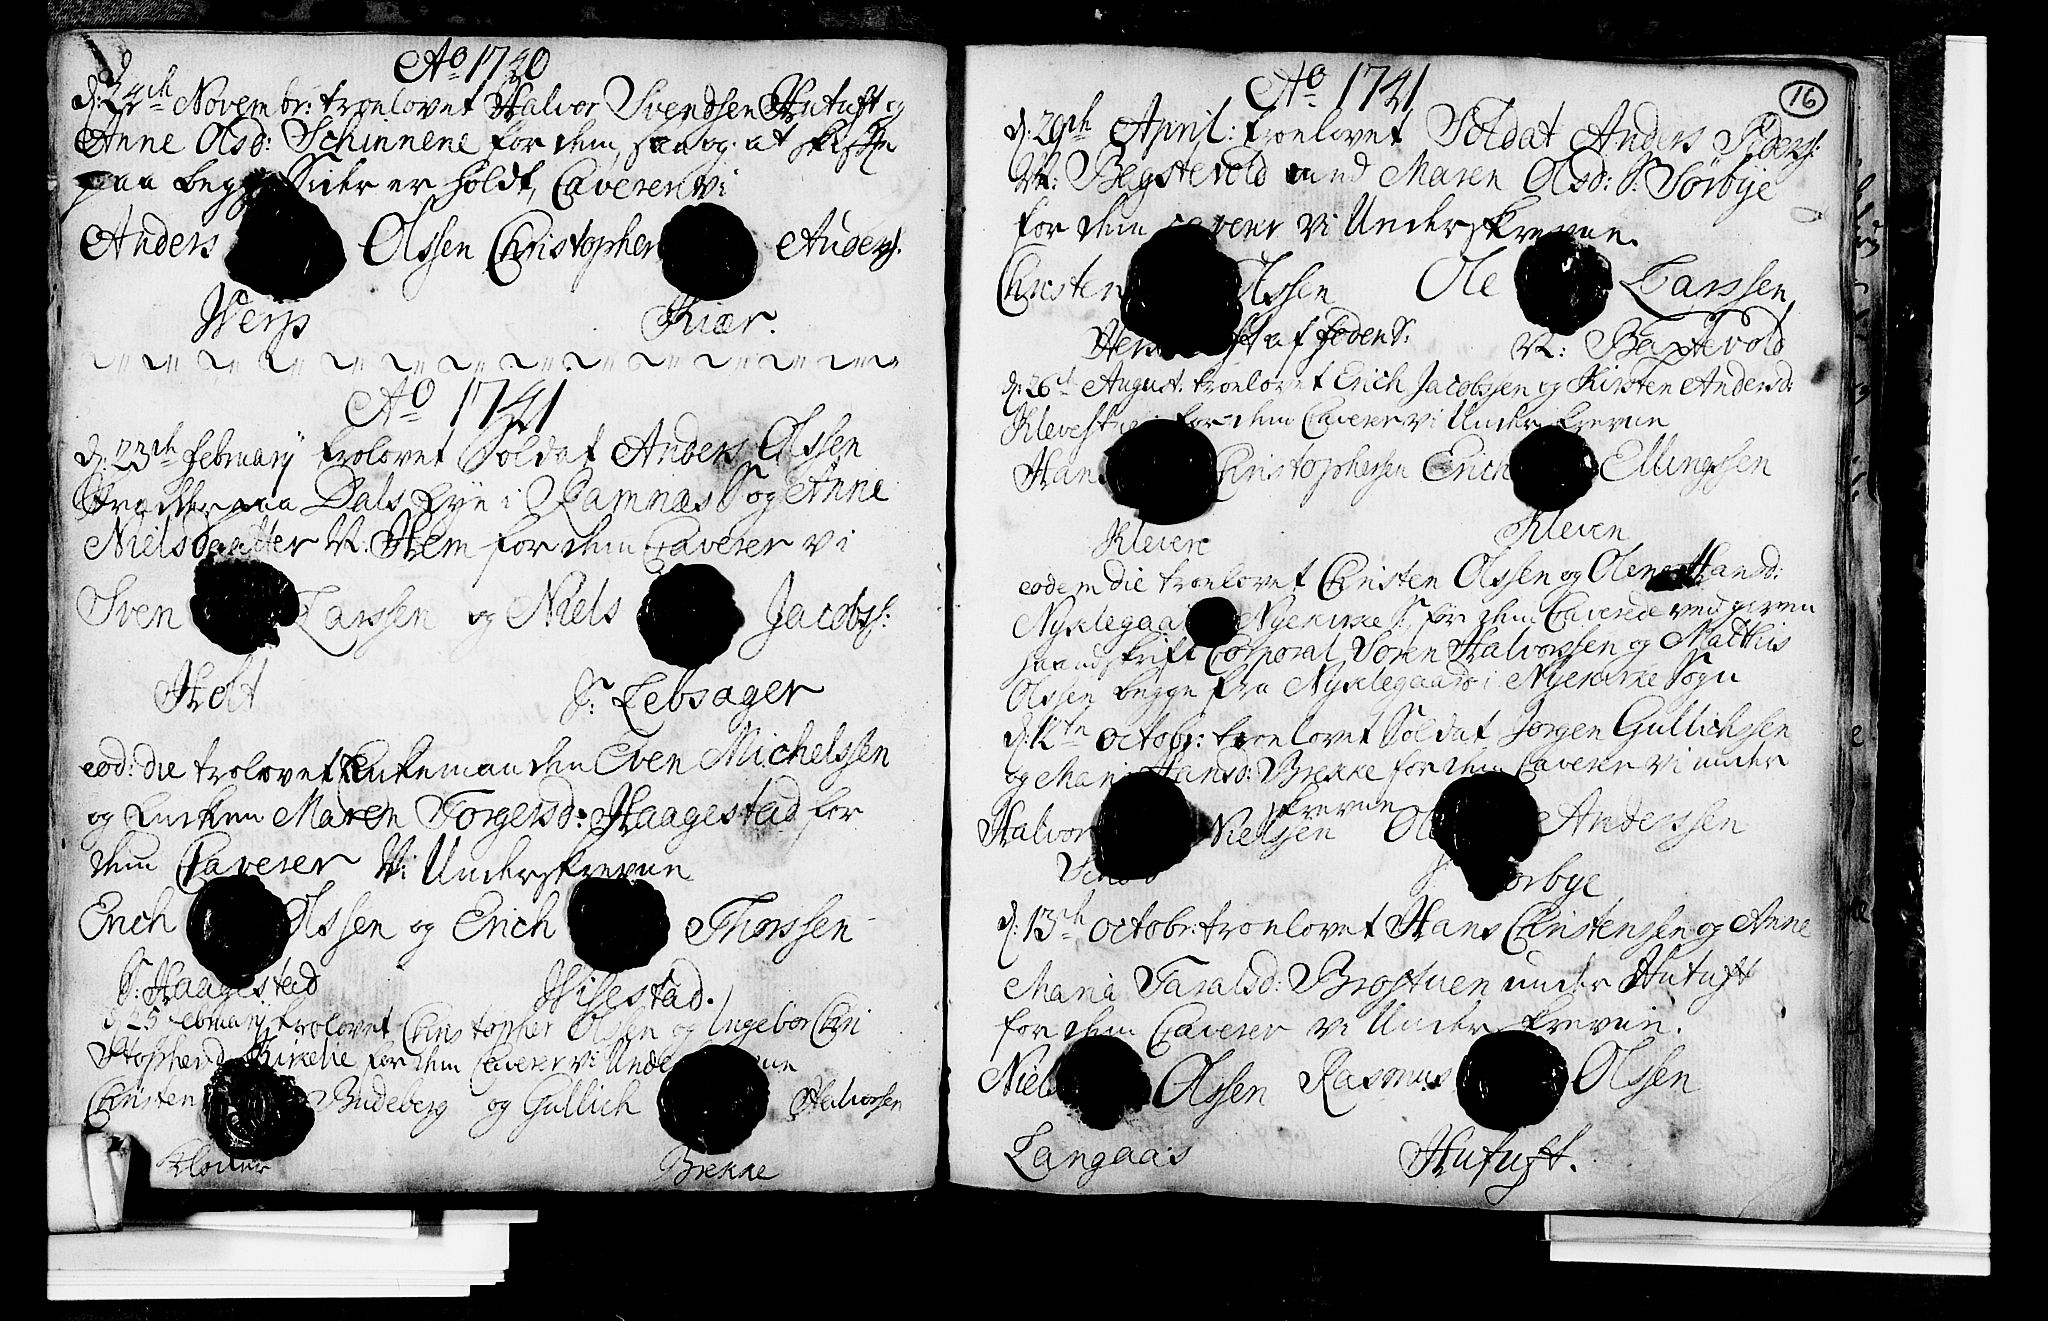 Ao 1740
d: 24th Novembr: troelovet Halvor Svendsen Hutuft og
Anne Olsd: Schinnene for dem, saa og at skifte
paa begge Sider er holdt, Caverer vi
Anders Olssen Christopher Anders:
Werp Kiær.
Ao 1741
d: 23th February trolovet Soldat Anders Olssen
paa Dals Eye i Ramnæs S og Anne
Niels Daatter N. Hem for dem Caverer vi
Sven Larssen og Niels Jacobss:
Holt S: Lebsager
eod: die trolovet Enkemanden Even Michelssen
og Enken Maren Torgersd: Haagestad for
dem Caverer Vi Underskrevne
Erich Olssen og Erich Thorssen
S: Haagestad Wisestad.
d 25 February trolovet Christopher Olssen og Ingebor Chri
stophersd Birkelie for dem Caverer vi Unde ne
Christen Budeberg og Gullich Halvorssen
Brekke
16
Ao 1741
d: 29th April: troelovet Soldat Anders Peders:
N: Begstevold und Maren Olsd: S: Sørbye
for dem Caverer vi Underskrevne.
Christen Olssen Ole Larssen
af Foden S: N: Baxtevold
d: 26t August: troelovet Erich Jacobssen og Kirsten Andersd:
for dem Caverer vi Underskrevne
Hans Christophersen Erich Ellingssen
Klevene Kleven
eodem die troelovet Christen Olssen og Olene Hansd:
Nyklegaa Nyekirke S: for dem Caverede ved given
haandskrift Corporal Soren Halvorssen og Matthis
Olssen begge fra Nyklegaard i Nyekirke Sogn
d: 12te Octobr: troelovet Soldat Jorgen Gullichssen
og Mari Hansd: Brekke for dem Caverer vi under
skrevne
Halvor Nielssen Ole Anderssen
Sørbye
d: 13th Octobr: troelovet Hans Christensen og Anne
Maria Taralsd: Brostuen under Hutuft
for dem Caverer vi Underskrevne.
Niels Olssen Rasmus Olssen
Langaas Hutuft.